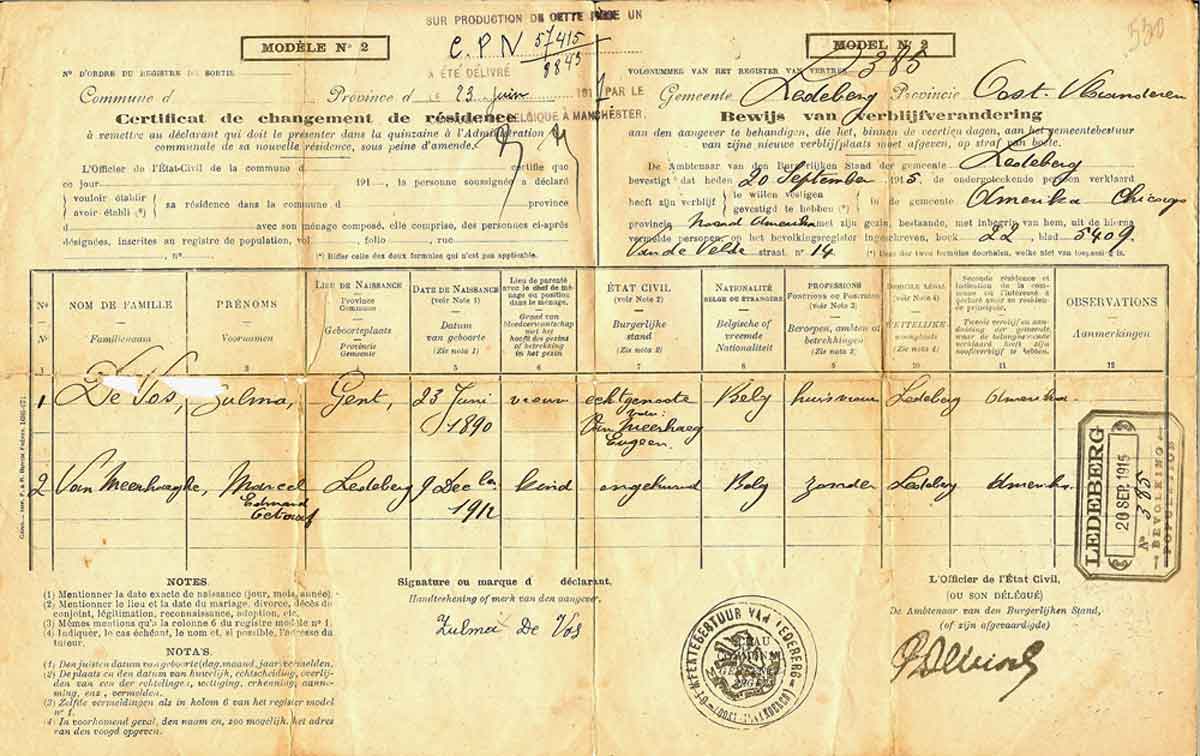 SUR PRODUCTION DE CETTE PIÈCE UN
C.P.N 57415
8845
A ÉTÉ DÉLIVRÉ
LE 23 juin 191 PAR LE
BELGIQUE À MANCHESTER.
550
MODÈLE N° 2
N° D'ORDRE DU REGISTRE DE SORTIE
Commune d Province d
Certificat de changement de résidence
à remettre au déclarant qui doit le présenter dans la quinzaine à l'Administration
communale de sa nouvelle résidence, sous peine d'amende.
L'Officier de l'État-Civil de la commune d certifie que
ce jour 191 , la personne soussignée a déclaré
vouloir établir
avoir établi (*)
sa résidence dans la commune d province
d avec son ménage composé, elle comprise, des personnes ci-après
désignées, inscrites au registre de population, vol , folio , rue
, n° . (*) Biffer celle des deux formules qui n'est pas applicable.
MODEL N. 2
VOLGNUMMER VAN HET REGISTER VAN VERTREK 385
Gemeente Ledeberg Provincie Oost-Vlaanderen
Bewijs van verblijfverandering
aan den aangever te behandigen, die het, binnen de veertien dagen, aan het gemeentebestuur
van zijne nieuwe verblijfplaats moet afgeven, op straf van boete.
De Ambtenaar van den Burgerlijken Stand der gemeente Ledeberg
bevestigt dat heden 20 September 1915. de ondergeteekende persoon verklaard
heeft zijn verblijf te willen vestigen
gevestigd te hebben (*)
in de gemeente Amerika Chicago
provincie Noord Amerika met zijn gezin, bestaande, met inbegrip van hem, uit de hierna
vermelde personen, op het bevolkingsregister ingeschreven, boek 22, blad 5409.
Van de Velde straat n° 14 (*) Deze der twee formules doorhalen, welke niet van toepassing is.
N°
N.
1
NOM DE FAMILLE
Familienaam
PRÉNOMS
Voornamen
3
LIEU DE NAISSANCE
Province
Commune
Geboorteplaats
Provincie
Gemeente
DATE DE NAISSANCE
(voir Note 1)
Datum
van geboorte
(Zie nota 1)
5
Lieu de parenté
avec le chef de mé-
nage ou position
dans le ménage.
Graad van
bloedverwantschap
met het
hoofd des gezins
of betrekking
in het gezin
6
ÉTAT CIVIL
(voir Note 2)
Burgerlijke
stand
(Zie nota 2)
7
NATIONALITÉ
BELGE OU ÉTRANGÈRE
Belgische of
vreemde
Nationaliteit
8
PROFESSIONS
FONCTIONS OU POSITION
(voir Note 3)
Beroepen, ambten of
betrekkingen
(Zie nota 3)
9
DOMICILE LÉGAL
(voir Note 4)
WETTELIJKE
woonplaats
(Zie nota 4)
10
Seconde résidence et
indication de la com-
mune où l'intéressé a
déclaré avoir sa résiden-
ce principale.
Tweede verblijf en aan-
duiding der gemeente
waar de belanghebbende
verklaard heeft zijn
hoofdverblijf te hebben.
11
OBSERVATIONS
Aanmerkingen
12
1 De Vos, Zulma, Gent, 23 Juni 1890 vrouw echtgenoote van Van Meerhaeg Eugeen. Belg huisvrouw Ledeberg Amerika
2 Van Meerhaeghe, Marcel Edmond Ledeberg 9 Dec 1912 kind ongehuwd Belg zonder Ledeberg Amerika
LEDEBERG
20 SEP. 1915
N° 385
BEVOLKING
POPULATION
NOTES.
(1) Mentionner la date exacte de naissance (jour, mois, année).
(2) Mentionner le lieu et la date du mariage, divorce, décès du
conjoint, légitimation, reconnaissance, adoption, etc.
(3) Mêmes mentions qu'à la colonne 6 du registre modèle n° 1.
(4) Indiquer, le cas échéant, le nom et, si possible, l'adresse du
tuteur.
NOTA'S.
(1) Den juisten datum van geboorte (dag, maand, jaar) vermelden.
(2) De plaats en den datum van huwelijk, echtscheiding, overlij-
den van een der echtelingen, wettiging, erkenning, aanne-
ming, enz., vermelden.
(3) Zelfde vermeldingen als in kolom 6 van het register model
n° 1.
(4) In voorkomend geval, den naam en, zoo mogelijk, het adres
van den voogd opgeven.
Signature ou marque d déclarant,
Handteekening of merk van den aangever.
Zulma De Vos
L'Officier de l'État Civil,
(OU SON DÉLÉGUÉ)
De Ambtenaar van den Burgerlijken Stand,
(of zijn afgevaardigde)